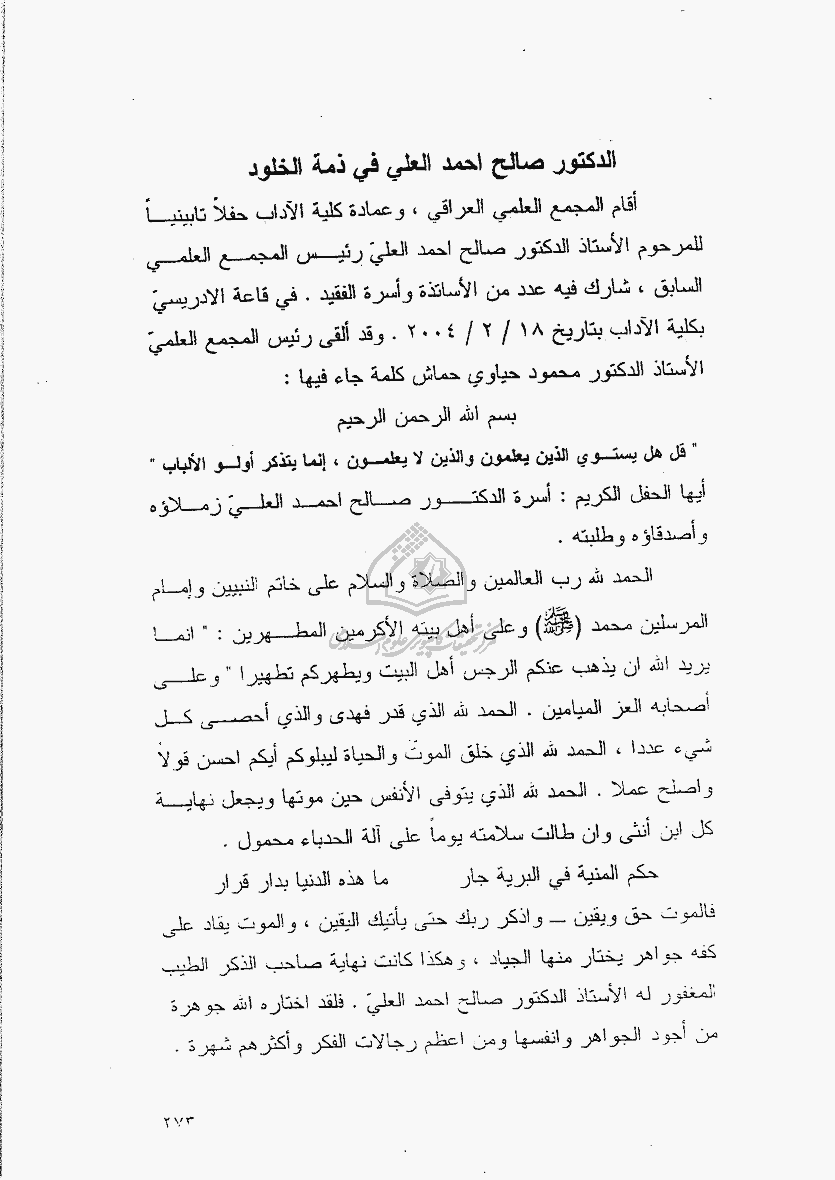 الدكتور صالح احمد العلي في ذمة الخلود
أقام المجمع العلمي العراقي ، وعمادة كلية الآداب حفلاً تابينيـــاً
للمرحوم الأستاذ الدكتور صالح احمد العليّ رئيـــس المجمـــع العلمـــي
السابق ، شارك فيه عدد من الأساتذة وأسرة الفقيد . في قاعة الادريسيّ
بكلية الآداب بتاريخ ١٨ / ٢ / ٢٠٠٤ . وقد ألقى رئيس المجمع العلميّ
الأستاذ الدكتور محمود حياوي حماش كلمة جاء فيها :
بسم الله الرحمن الرحيم
" قل هل يستـــوي الذين يعلمون والذين لا يعلمـــون ، إنما يتذكر أولـــو الألباب "
أيها الحفل الكريم : أسرة الدكتـــــور صـــالح احمـــد العلـــيّ زمـــلاؤه
وأصدقاؤه وطلبته .
الحمد لله رب العالمين والصلاة والسلام على خاتم النبيين وإمـــام
المرسلين محمد (ﷺ) وعلى أهل بيته الأكرمين المطـــهرين : " انمـــا
يريد الله ان يذهب عنكم الرجس أهل البيت ويطهركم تطهيرا " وعلـــى
أصحابه العز الميامين . الحمد لله الذي قدر فهدى والذي أحصـــى كـــل
شيء عددا ، الحمد لله الذي خلق الموت والحياة ليبلوكم أيكم احسن قولاً
واصلح عملا . الحمد لله الذي يتوفى الأنفس حين موتها ويجعل نهايـــة
كل ابن أنثى وان طالت سلامته يوماً على آلة الحدباء محمول .
حكم المنية في البرية جار ما هذه الدنيا بدار قرار
فالموت حق ويقين ــ واذكر ربك حتى يأتيك اليقين ، والموت يقاد على
كفه جواهر يختار منها الجياد ، وهكذا كانت نهاية صاحب الذكر الطيب
المغفور له الأستاذ الدكتور صالح احمد العليّ . فلقد اختاره الله جوهرة
من أجود الجواهر وانفسها ومن اعظم رجالات الفكر وأكثرهم شهرة .
٢٧٣